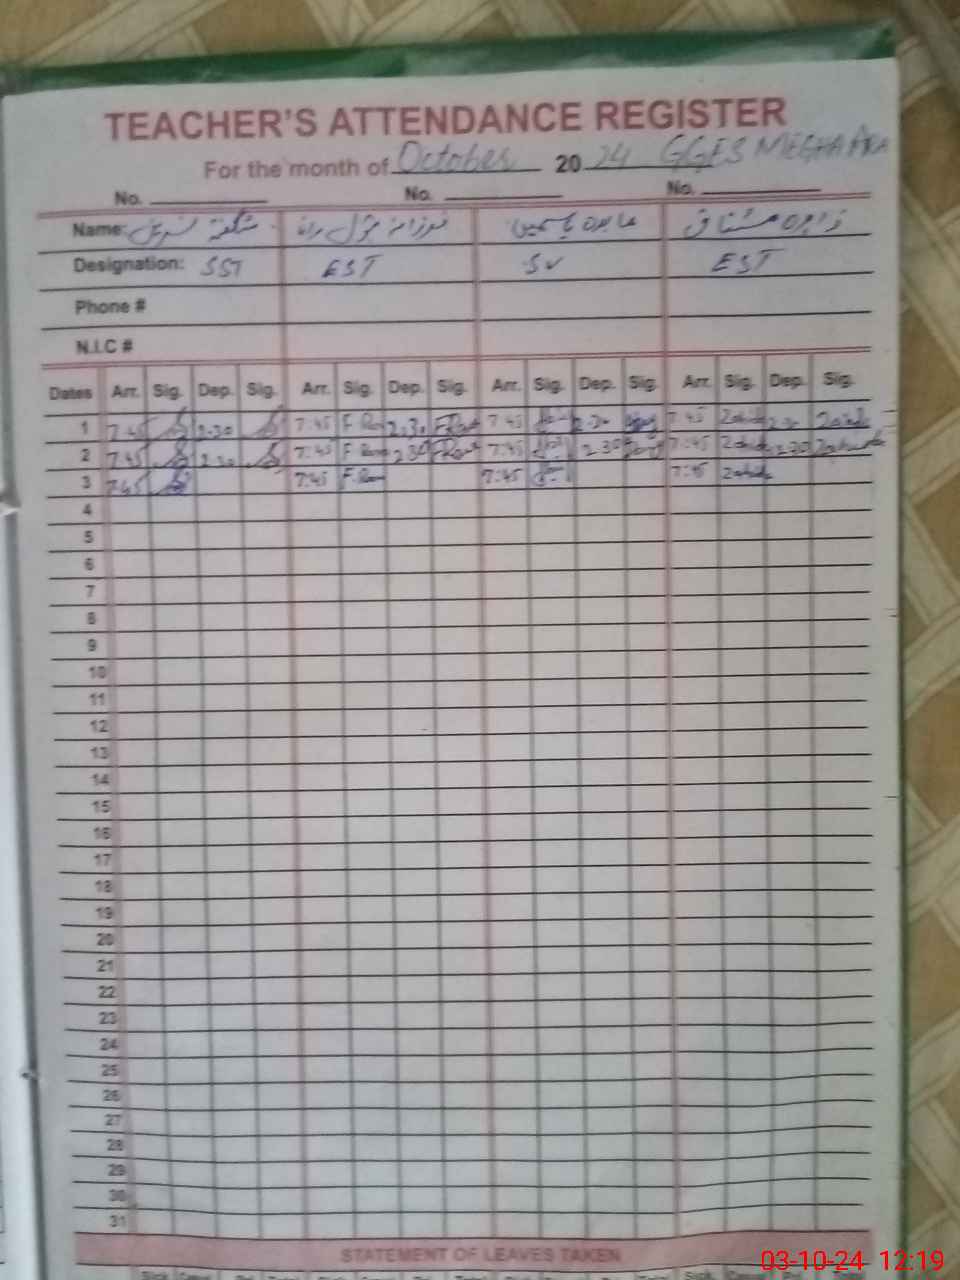 TEACHER'S ATTENDANCE REGISTER
For the month of October 20 24 GGES
No. No. No.
Name: شگفتہ نسرین فرزانہ بتول عابدہ یاسمین زاہدہ مشتاق
Designation: SST EST SV EST
Phone #
N.I.C #
Dates Arr. Sig. Dep. Sig. Arr. Sig. Dep. Sig. Arr. Sig. Dep. Sig. Arr. Sig. Dep. Sig.
1 7.45 2.30 7:45 2.30 7 45 2.30 7.45 2.30
2 7.45 2.30 7:45 2.30 7:45 2.30 7:45 2.30
3 7.45 7:45 7:45 7:45
4
5
6
7
8
9
10
11
12
13
14
15
16
17
18
19
20
21
22
23
24
25
26
27
28
29
30
31
STATEMENT OF LEAVES TAKEN
03-10-24 12:19